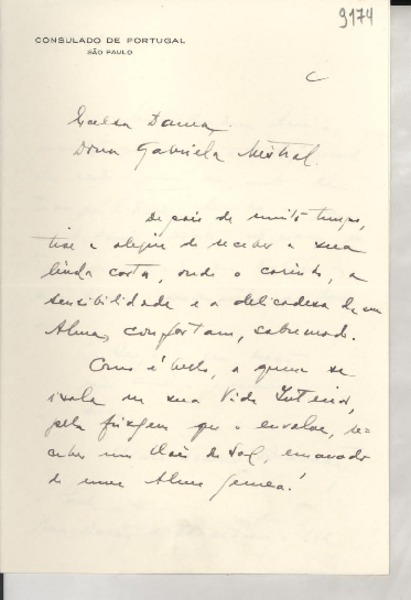 9174
CONSULADO DE PORTUGAL
SÃO PAULO
Excelsa Dama,
Dona Gabriela Mistral.
Depois de muito tempo,
tive a alegria de receber a sua
linda carta, onde o carinho, a
sensibilidade e a delicadeza de sua
Alma, confortam, sobremodo.
Como é belo, a quem se
isola na sua Vida Interior,
pela que o envolve, re-
ceber um de Sol, emanado
de uma Alma Gemea!